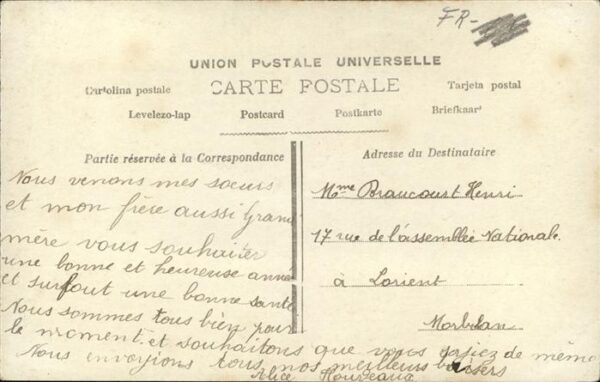 FR-
UNION POSTALE UNIVERSELLE
CARTE POSTALE
Cartolina postale
Tarjeta postal
Levelezo-lap
Postcard
Postkarte
Briefkaart
Partie réservée à la Correspondance
Nous venons mes soeurs
et mon frère aussi Grand
mère vous souhaiter
une bonne et heureuse anné
et surtout une bonne santé
Nous sommes tous bien pour
le moment et souhaitons que vous fassiez de même
Nous envoyions tous nos meilleurs baisers
Alice
Adresse du Destinataire
Mme Braucourt Henri
17 rue de l'assemblée Nationale
à Lorient
Morbihan